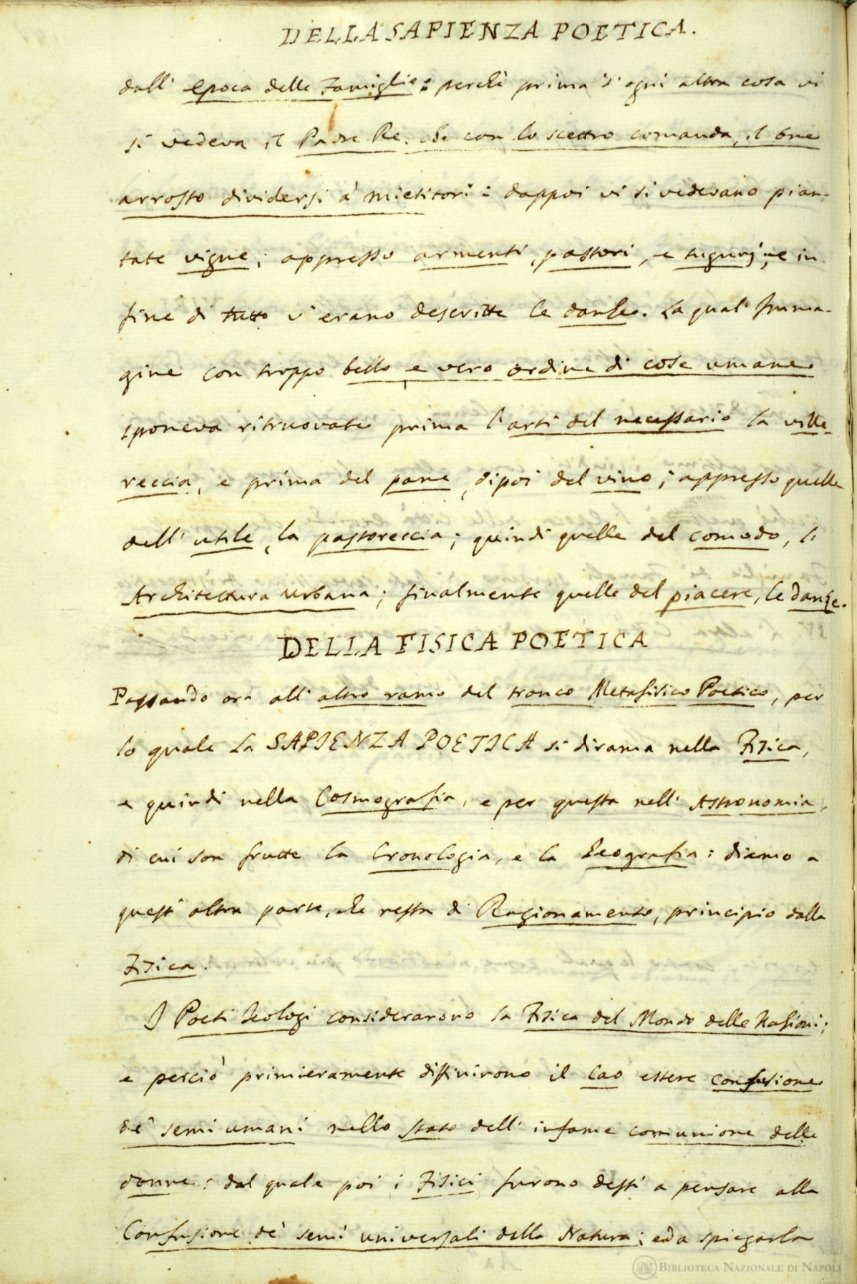 DELLA SAPIENZA POETICA.
dall' epoca delle Famiglie: perchè prima d'ogni altra cosa vi
si vedeva il Padre Re, che con lo scettro comanda, il bue
arrosto dividersi a' mietitori: dappoi vi si vedevano pian-
tate vigne; appresso armenti, pastori, e tugurj; e in
fine di tutto v'erano descritte le danze. La qual' Imma-
gine con troppo bello, e vero ordine di cose umane
sponeva ritruovate prima l'arti del necessario la ville-
reccia, e prima del pane, dipoi del vino; appresso quelle
dell' utile, la pastoreccia; quindi quelle del comodo, l'
Architettura urbana; finalmente quelle del piacere, le danze.
DELLA FISICA POETICA
Passando ora all' altro ramo del tronco Metafisico Poetico, per
lo quale La SAPIENZA POETICA si dirama nella Fisica,
e quindi nella Cosmografia, e per questa nell' Astronomia,
di cui son frutte la Cronologia, e la Geografia: diamo a
quest' altra parte, che resta di Ragionamento, principio dalla
Fisica.
I Poeti Teologi considerarono la Fisica del Mondo delle Nazioni;
e perciò primieramente diffinirono il Cao essere confusione
de' semi umani nello stato dell' infame comunione delle
donne: dal quale poi i Fisici furono desti a pensare alla
Confusione de' semi universali della Natura; ed a spiegarla
BIBLIOTECA NAZIONALE DI NAPOLI